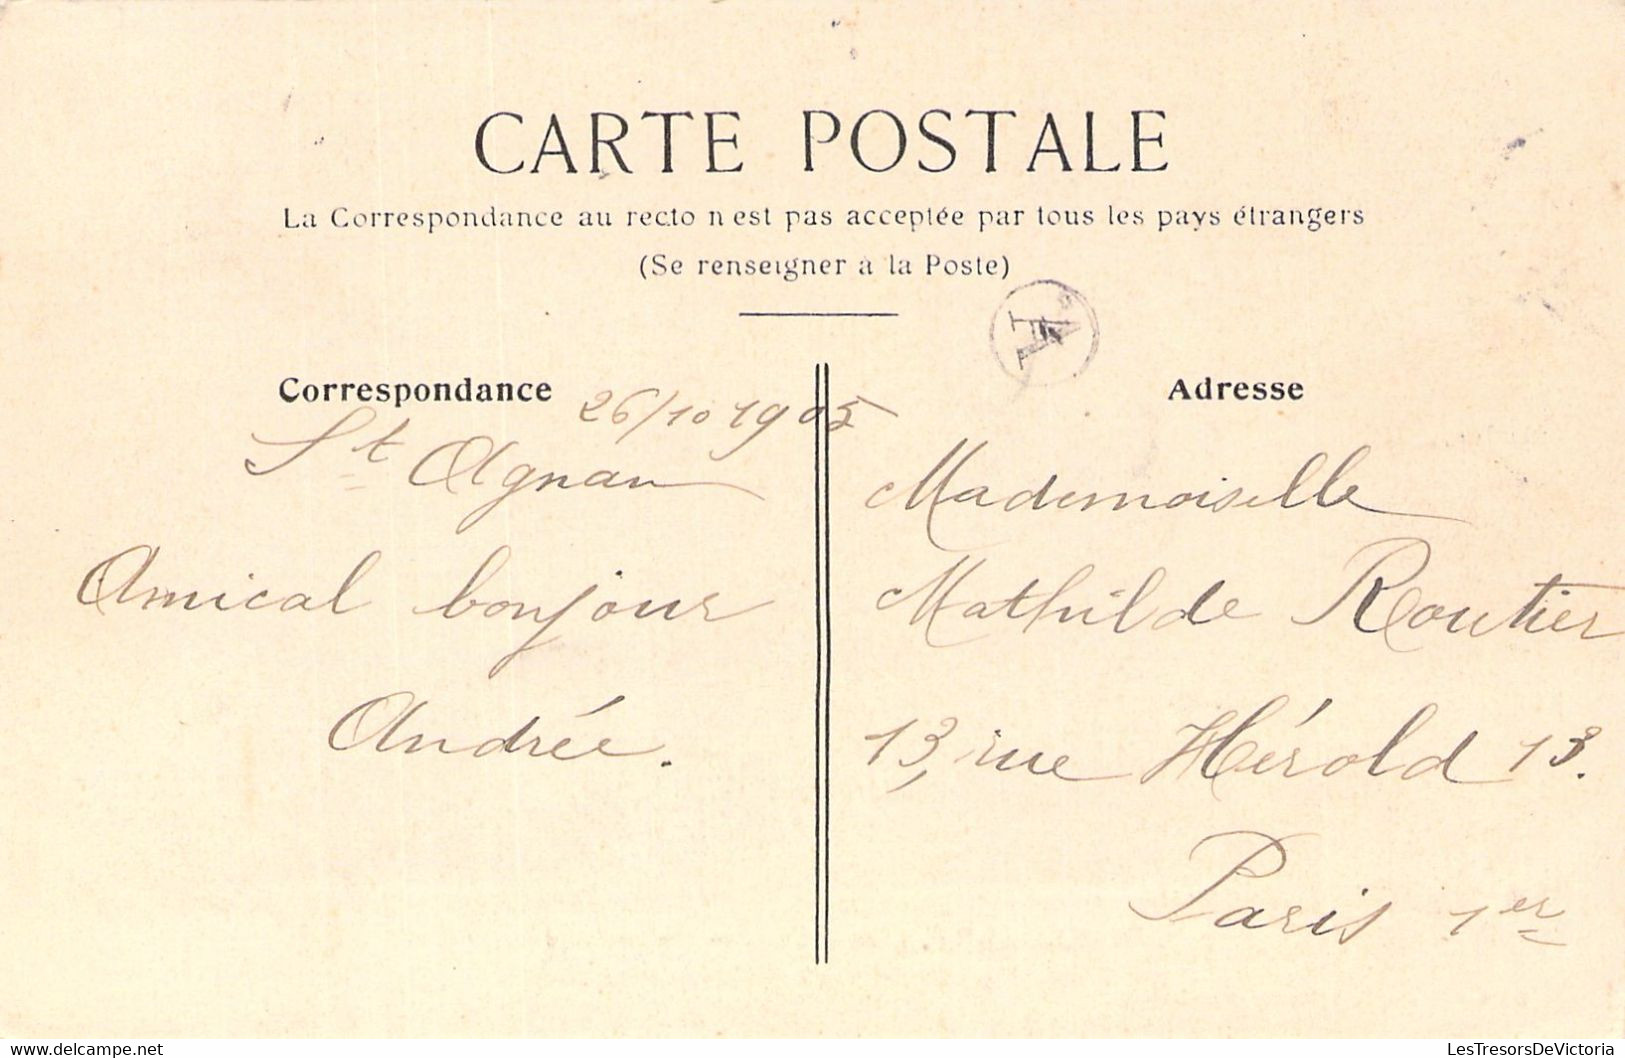 CARTE POSTALE
La Correspondance au recto n'est pas acceptée par tous les pays étrangers
(Se renseigner à la Poste)
A
Correspondance
26/10 1905
St Agnan
Amical bonjour
Andrée.
Adresse
Mademoiselle
Mathilde Routier
13, rue Hérold 13.
Paris 1er
www.delcampe.net
LesTresorsDeVictoria